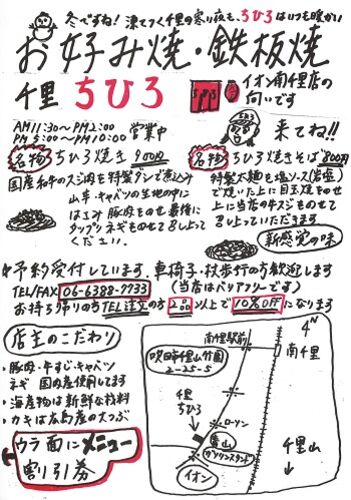 冬ですね！凍てつく千里の寒い夜も、ちひろはいつも暖かい
お好み焼・鉄板焼
千里 ちひろ
イオン南千里店の
向いです
AM11:30～PM2:00
PM5:00～PM10:00 営業中
来てね!!
名物 ちひろ焼き 900円
国産和牛のスジ肉を特製タレで煮込み
山芋・キャベツの生地の中に
はさみ豚肉ものせ最後に
タップリネギものせて召し上って
ください。
名物 ちひろ焼きそば 800円
特製太麺を塩ソース(岩塩)
で焼いた上に目玉焼をのせ
上に当店の牛スジものせて
召し上っていただきます
新感覚の味
予約受付しています。車椅子・杖歩行の方歓迎します
TEL/FAX 06-6388-7733 (当店はバリアフリーです)
お持ち帰りの方TEL注文の方 2品以上で10%OFFになります
店主のこだわり
・豚肉・牛すじ・キャベツ
ネギ 国内産使用してます
・海産物は新鮮な材料
・カキは広島産の大つぶ
ウラ面にメニュー
割引券
南千里駅前
吹田市千里山竹園
2-25-5
千里
ちひろ
ローソン
ガソリンスタンド
イオン
4
南千里
千里山